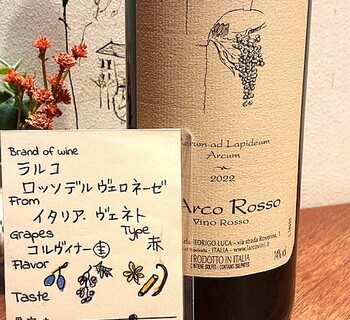 Brand of wine
ラルコ
ロッソデルヴェロネーゼ
From
イタリア. ヴェネト
Grapes
Type
コルヴィナー 主
赤
Flavor
Taste
erum ad Lapideum
Arcum
2022
Arco Rosso
Vino Rosso
FEDRIGO LUCA - via strada
ITALIA - www.larcovini.it
PRODOTTO IN ITALIA
CONTAINS SULPHITES
14% vol